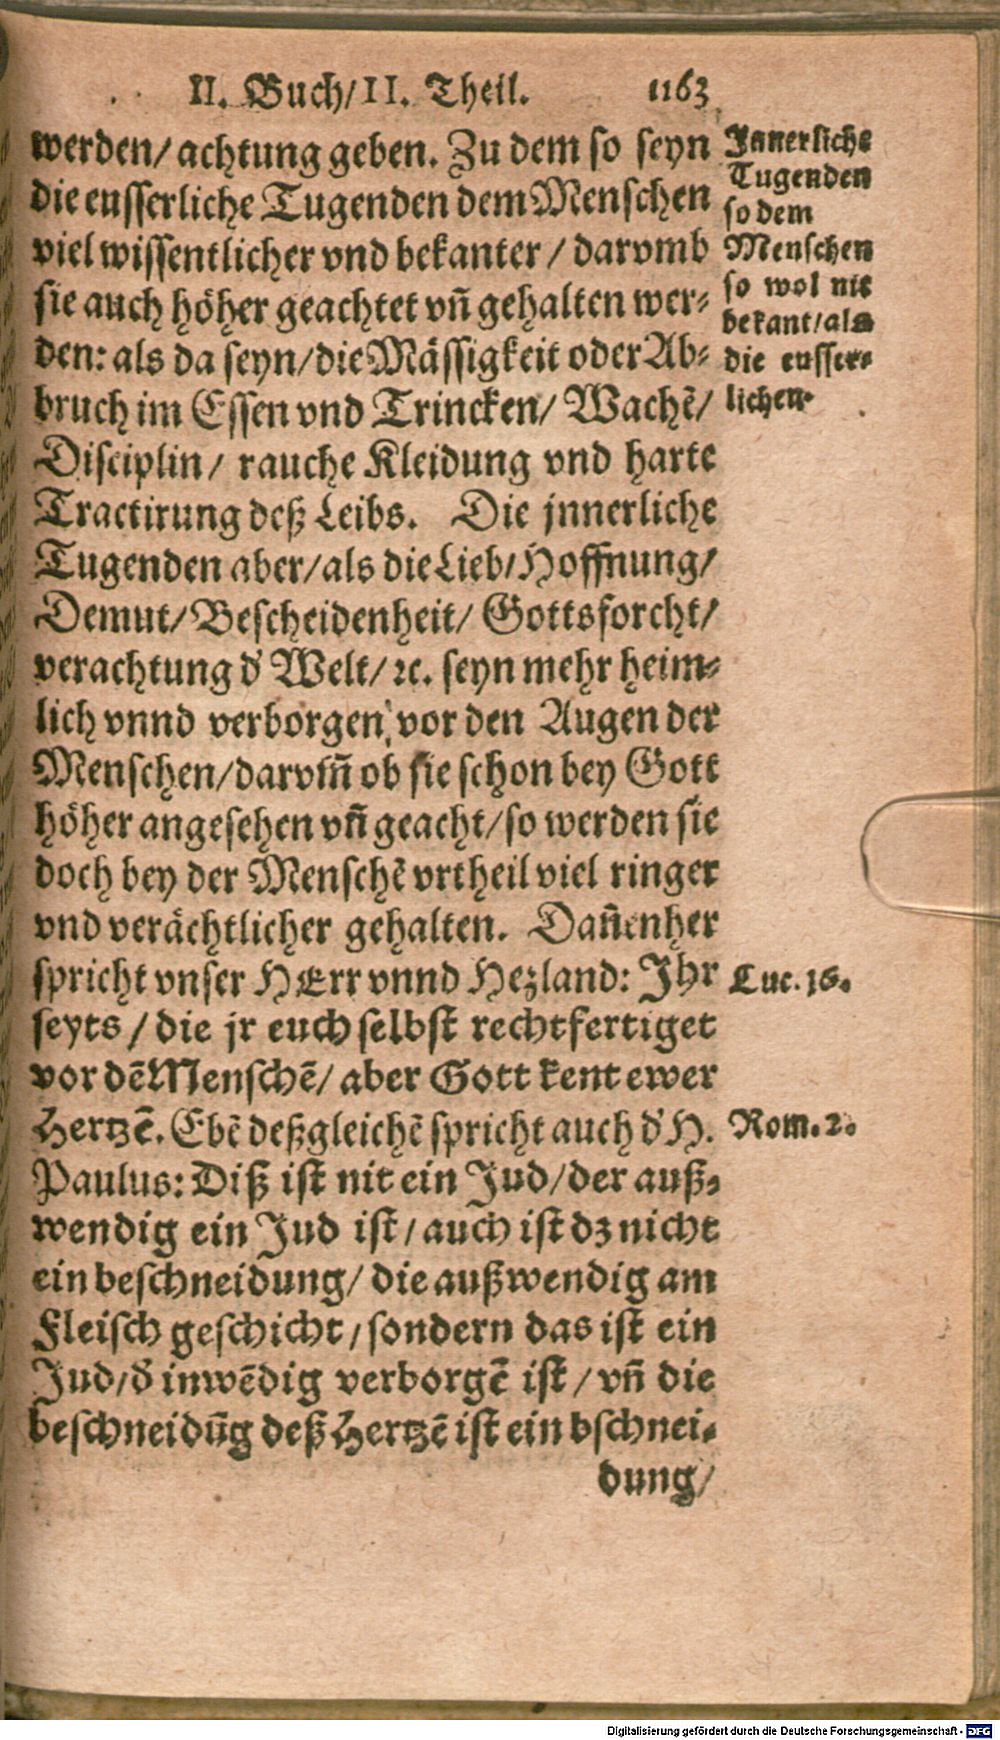 II. Buch/ II. Theil. 1163
werden/ achtung geben. Zu dem so seyn
die eusserliche Tugenden dem Menschen
viel wissentlicher vnd bekanter / darvmb
sie auch höher geachtet vñ gehalten wer-
den: als da seyn/ die Mässigkeit oder Ab-
bruch im Essen vnd Trincken/ Wachẽ/
Disciplin/ rauche Kleidung vnd harte
Tractirung deß Leibs. Die jnnerliche
Tugenden aber/ als die Lieb/ Hoffnung/
Demut/ Bescheidenheit/ Gottsforcht/
verachtung d' Welt/ ꝛc. seyn mehr heim-
lich vnnd verborgen vor den Augen der
Menschen/ darvm̃ ob sie schon bey Gott
höher angesehen vñ geacht/ so werden sie
doch bey der Menschẽ vrtheil viel ringer
vnd verächtlicher gehalten. Dañenher
spricht vnser HErr vnnd Heyland: Ihr
seyts / die jr euch selbst rechtfertiget
vor dẽ Menschẽ/ aber Gott kent ewer
Hertzẽ. Ebẽ deßgleichẽ spricht auch d' H.
Paulus: Diß ist nit ein Jud/ der auß-
wendig ein Jud ist / auch ist dz nicht
ein beschneidung/ die außwendig am
Fleisch geschicht / sondern das ist ein
Jud/ d' inwẽdig verborgẽ ist / vñ die
beschneidũg deß Hertzẽ ist ein bschnei-
dung/
Innerliche
Tugenden
so dem
Menschen
so wol nit
bekant/ als
die eusser-
lichen.
Luc. 16.
Rom. 2.
Digitalisierung gefördert durch die Deutsche Forschungsgemeinschaft - DFG